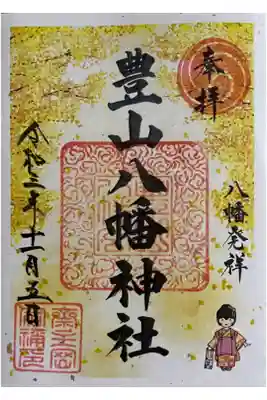 奉拝
八幡発祥
豊山八幡神社
令和二年十一月五日